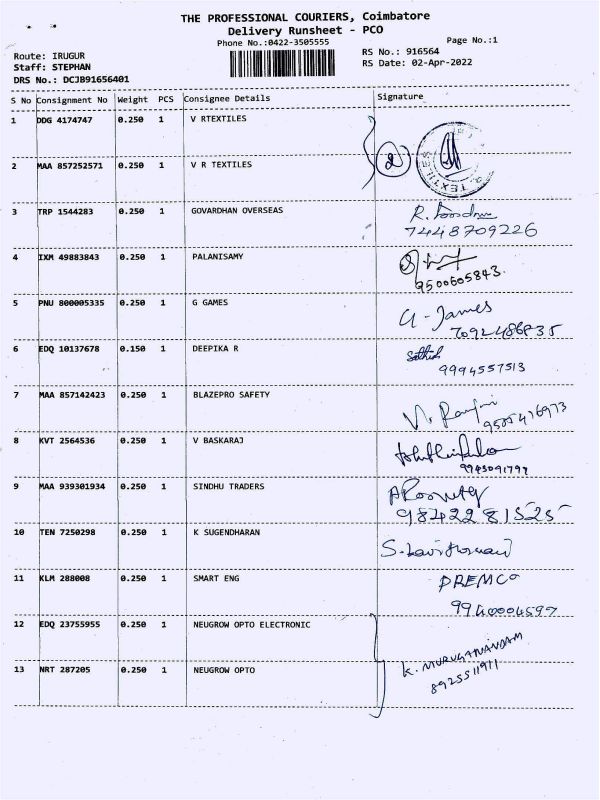 THE PROFESSIONAL COURIERS, Coimbatore
Delivery Runsheet - PCO
Phone No.:0422-3505555
Page No.:1
Route: IRUGUR
Staff: STEPHAN
DRS No.: DCJB91656401
RS No.: 916564
RS Date: 02-Apr-2022
S No Consignment No Weight PCS Consignee Details Signature
1 DDG 4174747 0.250 1 V RTEXTILES
2 MAA 857252571 0.250 1 V R TEXTILES
2
TEXTILES
3 TRP 1544283 0.250 1 GOVARDHAN OVERSEAS
7448709226
4 IXM 49883843 0.250 1 PALANISAMY
9500605843.
5 PNU 800005335 0.250 1 G GAMES
G - James
7092486835
6 EDQ 10137678 0.150 1 DEEPIKA R
Sathish
9994557513
7 MAA 857142423 0.250 1 BLAZEPRO SAFETY
9505476973
8 KVT 2564536 0.250 1 V BASKARAJ
9 MAA 939301934 0.250 1 SINDHU TRADERS
98422 81525
10 TEN 7250298 0.250 1 K SUGENDHARAN
11 KLM 288008 0.250 1 SMART ENG
PREMCO
9940004597
12 EDQ 23755955 0.250 1 NEUGROW OPTO ELECTRONIC
K. MURUGANANDAM
8925511911
13 NRT 287205 0.250 1 NEUGROW OPTO